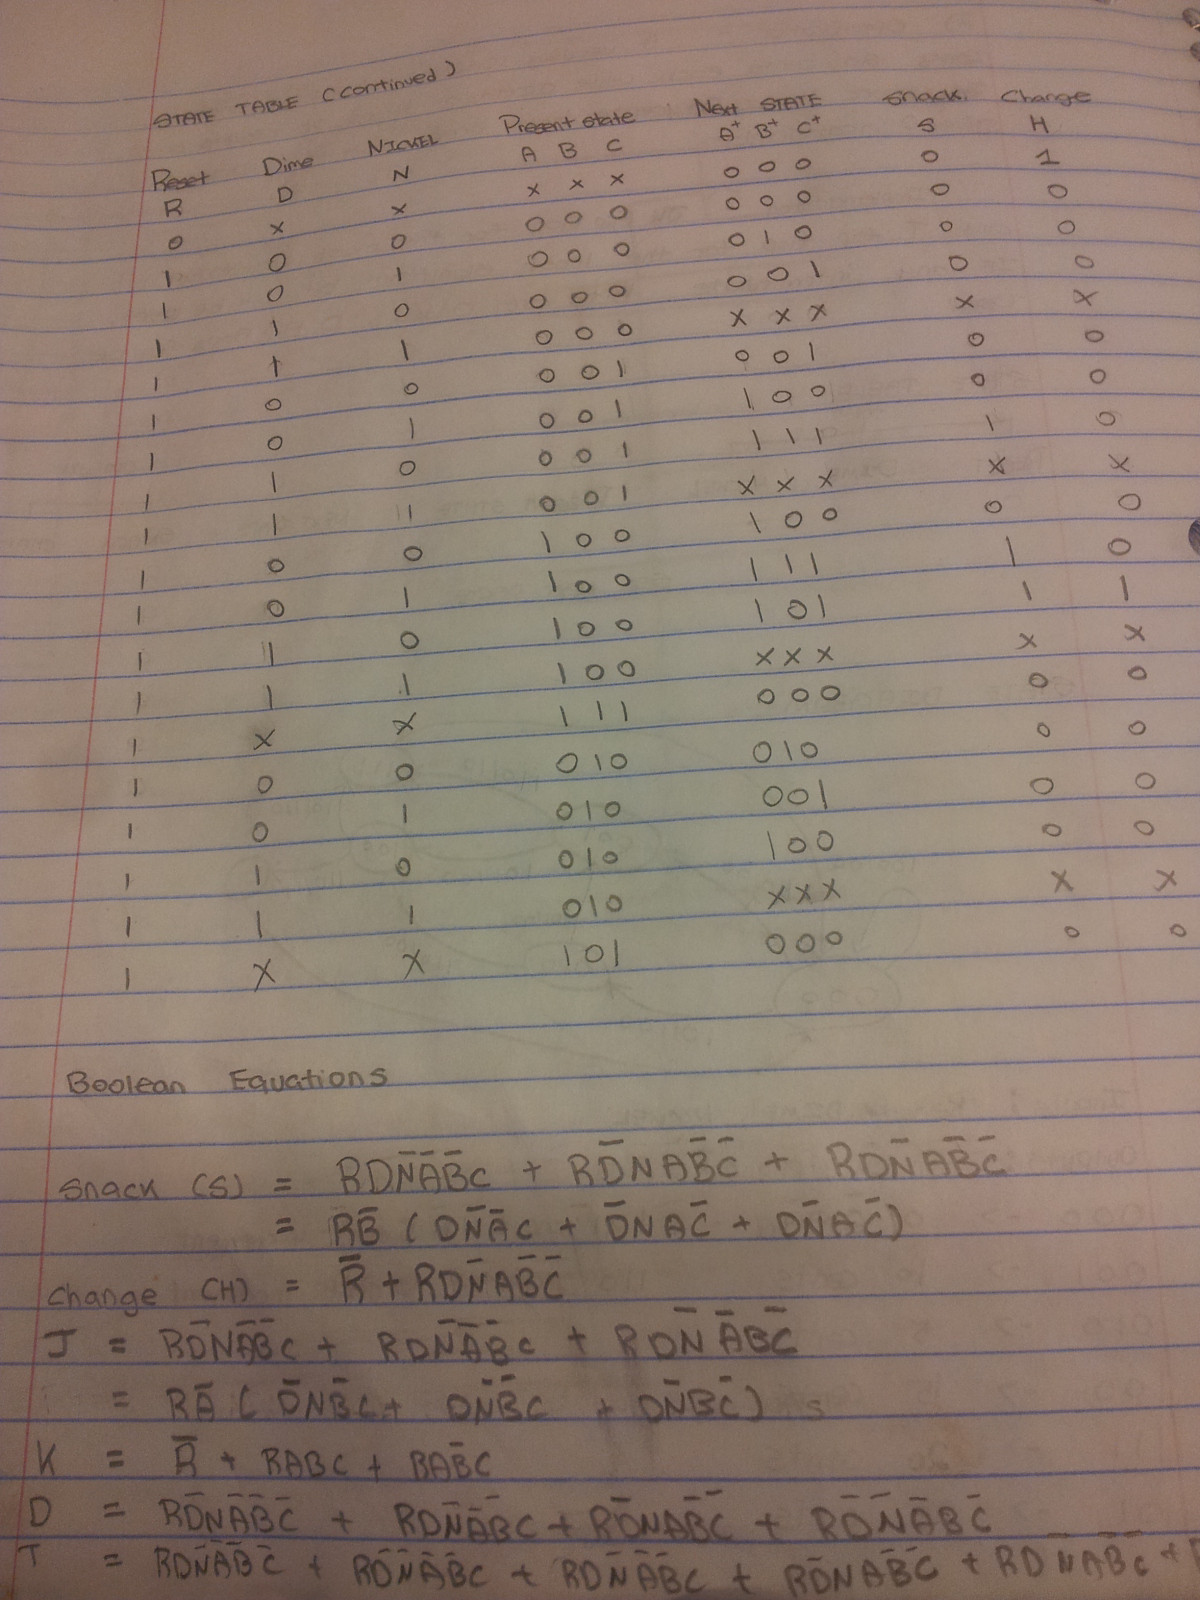 STATE TABLE (continued)
Reset Dime NICKEL Present state Next STATE Snack Change
R D N A B C A⁺ B⁺ C⁺ S H
0 x x x x x 0 0 0 0 1
1 0 0 0 0 0 0 0 0 0 0
1 0 1 0 0 0 0 1 0 0 0
1 1 0 0 0 0 0 0 1 0 0
1 1 1 0 0 0 x x x x x
1 0 0 0 0 1 0 0 1 0 0
1 0 1 0 0 1 1 0 0 0 0
1 1 0 0 0 1 1 1 1 1 0
1 1 1 0 0 1 x x x x x
1 0 0 1 0 0 1 0 0 0 0
1 0 1 1 0 0 1 1 1 1 0
1 1 0 1 0 0 1 0 1 1 1
1 1 1 1 0 0 x x x x x
1 x x 1 1 1 0 0 0 0 0
1 0 0 0 1 0 0 1 0 0 0
1 0 1 0 1 0 0 0 1 0 0
1 1 0 0 1 0 1 0 0 0 0
1 1 1 0 1 0 x x x x x
1 x x 1 0 1 0 0 0 0 0
Boolean Equations
Snack (S) = RDN̄ĀB̄C + RD̄NAB̄C̄ + RDN̄AB̄C̄
= RB̄ (DN̄ĀC + D̄NAC̄ + DN̄AC̄)
Change (H) = R̄ + RDN̄AB̄C̄
J = RD̄NĀB̄C + RDN̄ĀB̄C + RDN̄ĀBC̄
= RĀ (D̄NB̄C + DN̄B̄C + DN̄BC̄)
K = R̄ + RABC + RAB̄C
D = RD̄NĀB̄C̄ + RDN̄ĀB̄C + RD̄NAB̄C̄ + RD̄N̄ĀBC̄
T = RDN̄ĀB̄C̄ + RD̄N̄ĀB̄C + RDN̄ĀB̄C + RD̄NAB̄C̄ + RDN̄AB̄C̄ +